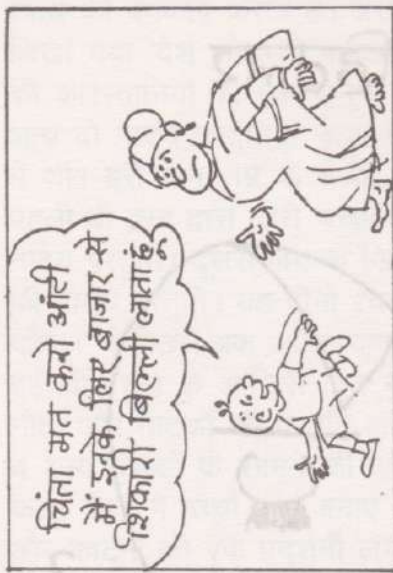 चिंता मत करो आंटी
में इनके लिए बाजार से
शिकारी बिल्ली लाता हूं